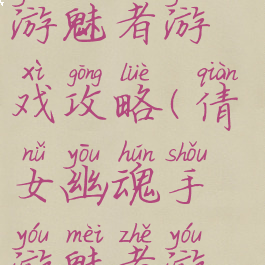 游魅者游
xì gōng lüè qiàn
戏攻略(倩
nǚ yōu hún shǒu
女幽魂手
yóu mèi zhě yóu
游魅者游